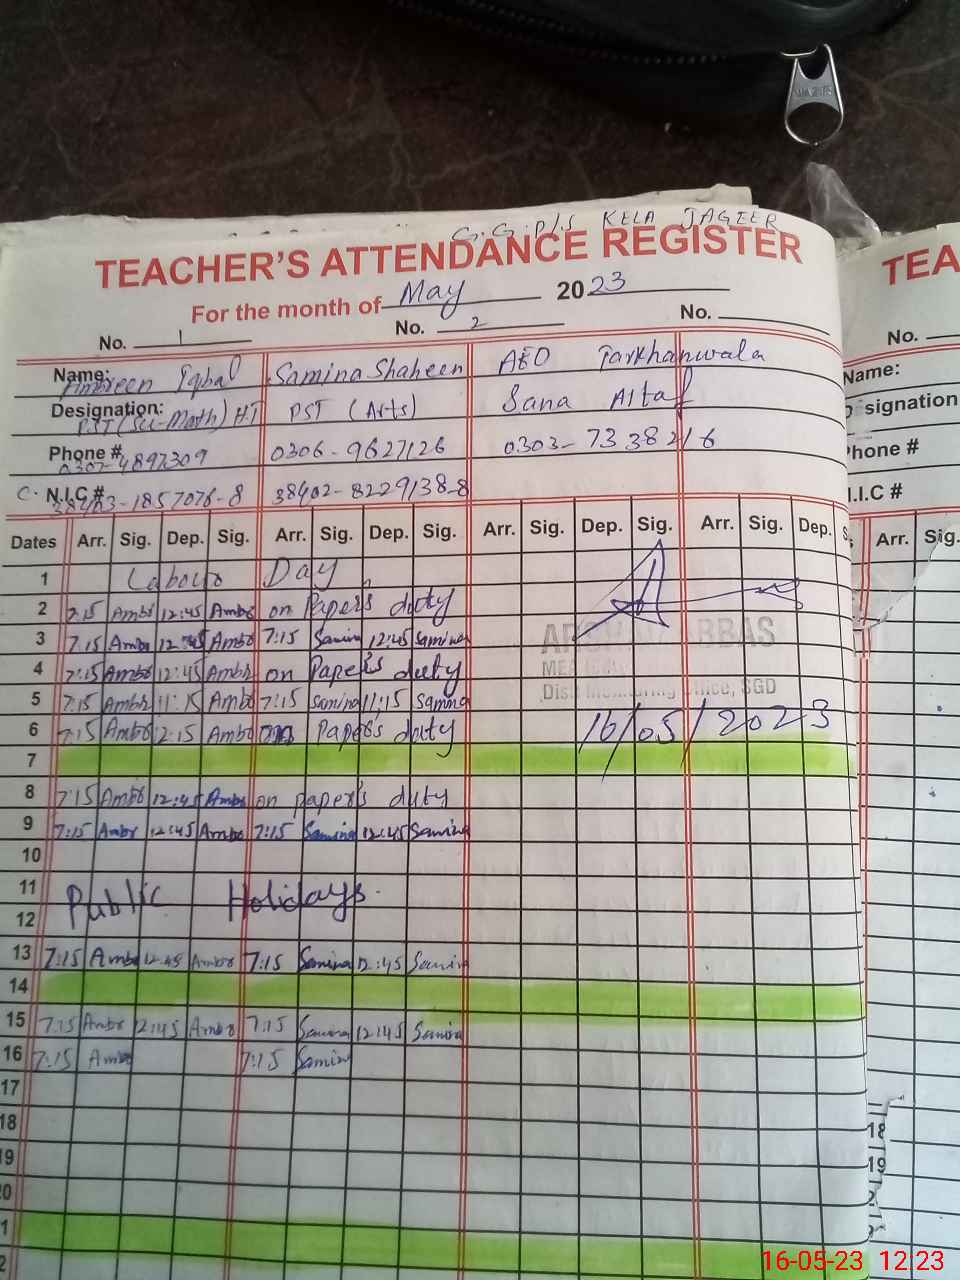 G.G.P/S KELA JAGEER
TEACHER'S ATTENDANCE REGISTER
TEA
For the month of May 2023
No. 1 No. 2 No.
No.
Name: Ambreen Iqbal Samina Shaheen AEO Tarkhanwala
Name:
Designation: PST (Sci-Math) H.T PST (Arts) Sana Altaf
signation
Phone # 0307-4897309 0306-9627126 0303-7338216
Phone #
C. N.I.C # 38403-1857076-8 38402-8229138-8
I.I.C #
Dates Arr. Sig. Dep. Sig. Arr. Sig. Dep. Sig. Arr. Sig. Dep. Sig. Arr. Sig. Dep. S
Arr. Sig.
1 Labour Day
2 7:15 Ambr 12:45 Ambr on Papers duty
3 7:15 Ambr 12:45 Ambr 7:15 Samina 12:45 Samina
ABBAS
4 7:15 Ambr 12:45 Ambr on Paper's duty
MEA
5 7:15 Ambr 11:15 Ambr 7:15 Samina 11:15 Samina
Office, SGD
6 7:15 Ambr 12:15 Ambr on Paper's duty
16/05/2023
7
8 7:15 Ambr 12:45 Ambr on paper's duty
9 7:15 Ambr 12:45 Ambr 7:15 Samina 12:45 Samina
10
11 Public Holidays
12
13 7:15 Ambr 12:45 Ambr 7:15 Samina 12:45 Samina
14
15 7:15 Ambr 12:45 Ambr 7:15 Samina 12:45 Samina
16 7:15 Ambr 7:15 Samina
17
18
18
19
19
20
1
2
16-05-23 12:23